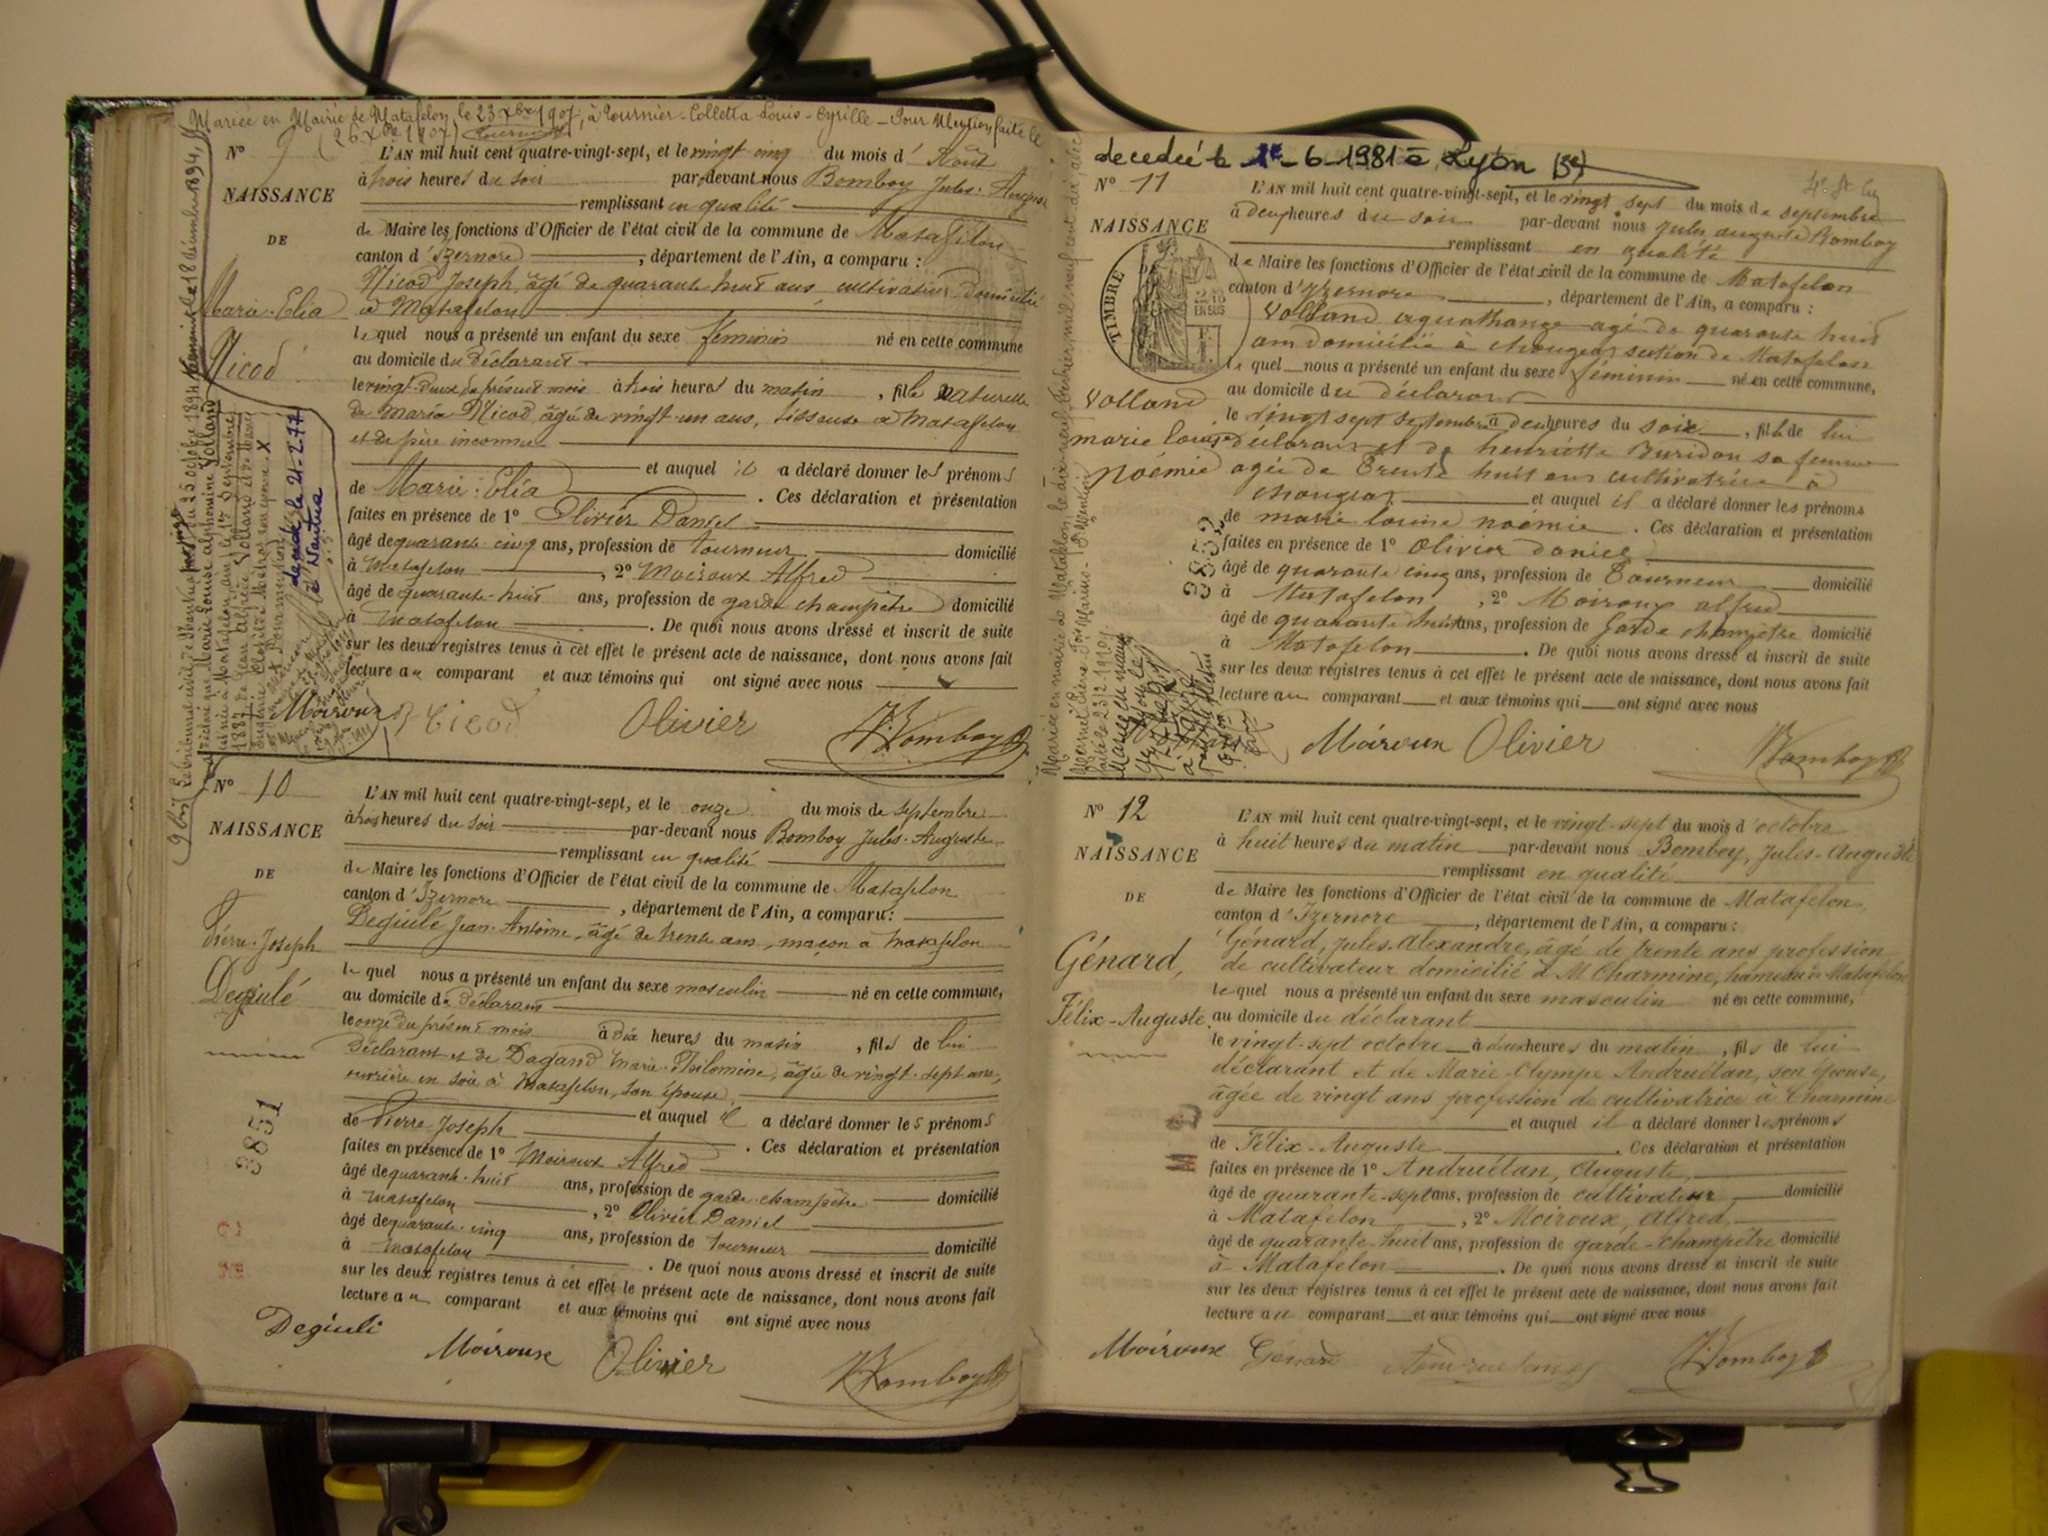 Mariée en Mairie de Matafelon, le 23 Xbre 1907, à Tournier-Colletta Louis-Cyrille - Pour Mention faite le
(26 Xbre 1907)
N° 9
NAISSANCE
DE
Marie-Elia
Nicod
L'AN mil huit cent quatre-vingt-sept, et le vingt cinq du mois d'Août
à trois heures du soir par-devant nous Bomboy Jules-Auguste
remplissant en qualité
de Maire les fonctions d'Officier de l'état civil de la commune de Matafelon
canton d'Izernore, département de l'Ain, a comparu :
Nicod Joseph, âgé de quarante huit ans cultivateur domicilié
à Matafelon
lequel nous a présenté un enfant du sexe féminin né en cette commune
au domicile du déclarant
le vingt-deux du présent mois à trois heures du matin, fille naturelle
de Maria Nicod âgée de vingt un ans, tisseuse à Matafelon
et de père inconnu
et auquel il a déclaré donner les prénoms
de Marie-Elia. Ces déclaration et présentation
faites en présence de 1° Olivier Daniel
âgé de quarante-cinq ans, profession de tourneur domicilié
à Matafelon, 2° Moiroux Alfred
âgé de quarante-huit ans, profession de garde champêtre domicilié
à Matafelon. De quoi nous avons dressé et inscrit de suite
sur les deux registres tenus à cet effet le présent acte de naissance, dont nous avons fait
lecture au comparant et aux témoins qui ont signé avec nous
Moiroux Nicod Olivier Bomboy
décédée le 21-2-77
à Nantua
9 bis
Le tribunal civil de Nantua par jugt du 25 octobre 1894
Marie Louise Alphonsine Volland
née à Matafelon, Ain, le 1er Septembre
1887, de Jean Alfrée Volland et de Marie
N° 10
NAISSANCE
DE
Pierre-Joseph
Degiulé
L'AN mil huit cent quatre-vingt-sept, et le onze du mois de septembre
à trois heures du soir par-devant nous Bomboy Jules-Auguste
remplissant en qualité
de Maire les fonctions d'Officier de l'état civil de la commune de Matafelon
canton d'Izernore, département de l'Ain, a comparu :
Degiulé Jean-Antoine, âgé de trente ans, maçon à Matafelon
lequel nous a présenté un enfant du sexe masculin né en cette commune,
au domicile du déclarant
le onze du présent mois à dix heures du matin, fils de lui
déclarant et de Dagand Marie-Philomine, âgée de vingt-sept ans,
ouvrière en soie à Matafelon, son épouse,
et auquel il a déclaré donner les prénoms
de Pierre-Joseph. Ces déclaration et présentation
faites en présence de 1° Moiroux Alfred
âgé de quarante-huit ans, profession de garde-champêtre domicilié
à Matafelon, 2° Olivier Daniel
âgé de quarante-cinq ans, profession de tourneur domicilié
à Matafelon. De quoi nous avons dressé et inscrit de suite
sur les deux registres tenus à cet effet le présent acte de naissance, dont nous avons fait
lecture au comparant et aux témoins qui ont signé avec nous
Degiuli Moiroux Olivier Bomboy
3851
decedeé le 1e-6-1981 à Lyon (5e)
N° 11
NAISSANCE
TIMBRE
Volland
marie louise
Noémie
L'AN mil huit cent quatre-vingt-sept, et le vingt sept du mois de septembre
à deux heures du soir par-devant nous Jules auguste Bomboy
remplissant en qualité
de Maire les fonctions d'Officier de l'état civil de la commune de Matafelon
canton d'Izernore, département de l'Ain, a comparu :
Volland aquathange agé de quarante huit
ans domicilié à chougeat section de Matafelon
lequel nous a présenté un enfant du sexe féminin né en cette commune,
au domicile du déclarant
le vingt sept septembre à deux heures du soir, fille de lui
déclarant et de henriette Buridon sa femme
agée de Trente huit ans cultivatrice à
chougeat et auquel il a déclaré donner les prénoms
de marie louise noémie. Ces déclaration et présentation
faites en présence de 1° Olivier daniel
âgé de quarante cinq ans, profession de Tourneur domicilié
à Matafelon, 2° Moiroux alfred
âgé de quarante huit ans, profession de Garde champêtre domicilié
à Matafelon. De quoi nous avons dressé et inscrit de suite
sur les deux registres tenus à cet effet le présent acte de naissance, dont nous avons fait
lecture au comparant et aux témoins qui ont signé avec nous
Moiroux Olivier Bomboy
3852
Mariée en mairie de Matafelon le dix-neuf février mil neuf cent dix, avec
N° 12
NAISSANCE
DE
Génard,
Félix-Auguste.
L'AN mil huit cent quatre-vingt-sept, et le vingt-sept du mois d'octobre
à huit heures du matin par-devant nous Bomboy, Jules-Auguste
remplissant en qualité
de Maire les fonctions d'Officier de l'état civil de la commune de Matafelon,
canton d'Izernore, département de l'Ain, a comparu :
Génard, Jules-Alexandre, âgé de trente ans profession
de cultivateur domicilié à M Charmine, hameau de Matafelon
lequel nous a présenté un enfant du sexe masculin né en cette commune,
au domicile du déclarant
le vingt-sept octobre à deux heures du matin, fils de lui
déclarant et de Marie-Olympe Andruétan, son épouse,
âgée de vingt ans profession de cultivatrice à Charmine
et auquel il a déclaré donner les prénoms
de Félix-Auguste. Ces déclaration et présentation
faites en présence de 1° Andruétan, Auguste,
âgé de quarante-sept ans, profession de cultivateur domicilié
à Matafelon, 2° Moiroux, Alfred,
âgé de quarante-huit ans, profession de garde-champêtre domicilié
à Matafelon. De quoi nous avons dressé et inscrit de suite
sur les deux registres tenus à cet effet le présent acte de naissance, dont nous avons fait
lecture au comparant et aux témoins qui ont signé avec nous
Moiroux Génard Bomboy